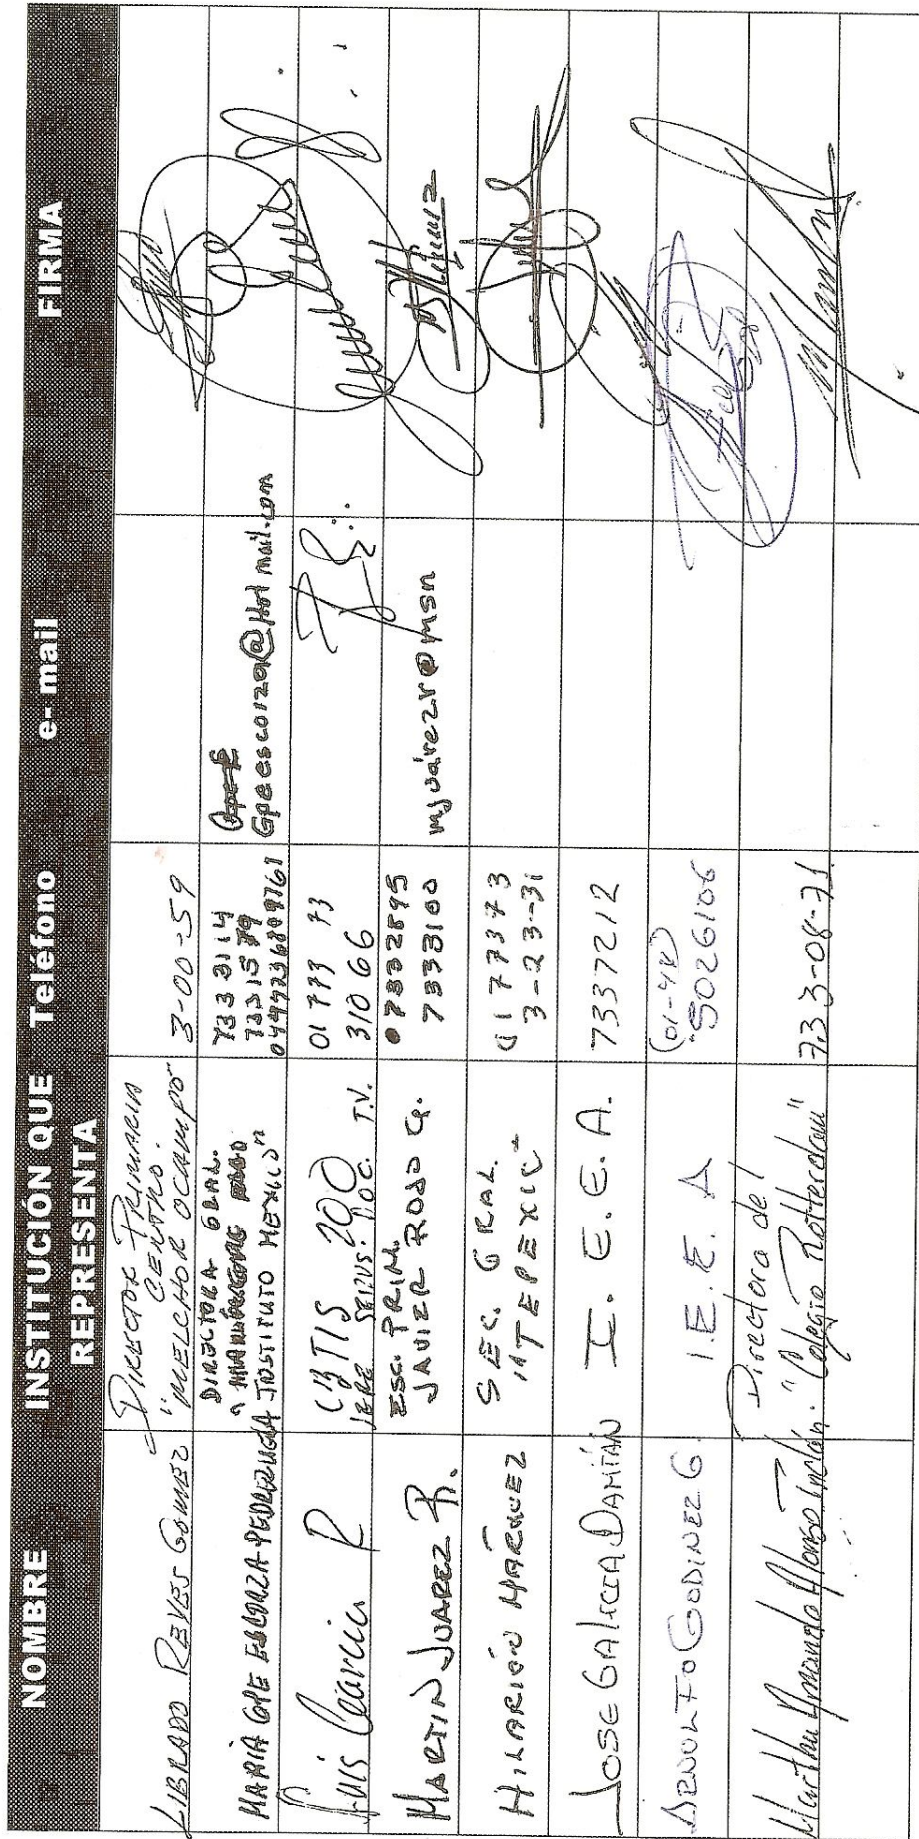 NOMBRE INSTITUCIÓN QUE REPRESENTA Teléfono e- mail FIRMA
LIBRADO REYES GOMEZ DIRECTOR PRIMARIA
CENTRO.
"MELCHOR OCAMPO" 3-00-59
MARIA GPE ESCORZA PEDRAZA DIRECTORA GRAL.
INSTITUTO MEXICO" 7333114
7331579
Gpeescorza@Hotmail.com
Luis García R CBTIS 200
JEFE SERVS. DOC. T.V.
01773 73
310 66
MARTIN JUAREZ R. ESC. PRIM.
JAVIER ROJO G.
7332895
7333100
mjuárezr@msn
HILARIÓN MÁRQUEZ SEC. GRAL.
ITEPEXIC
01 773 73
3-23-31
JOSE GALICIA DAMIÁN I. E. E. A. 7337212
ARNULFO GODINEZ G I.E.E. A
5026106
Martha Amanda Alonso Inclán. Directora del
"Colegio Rotterdam" 733-08-71